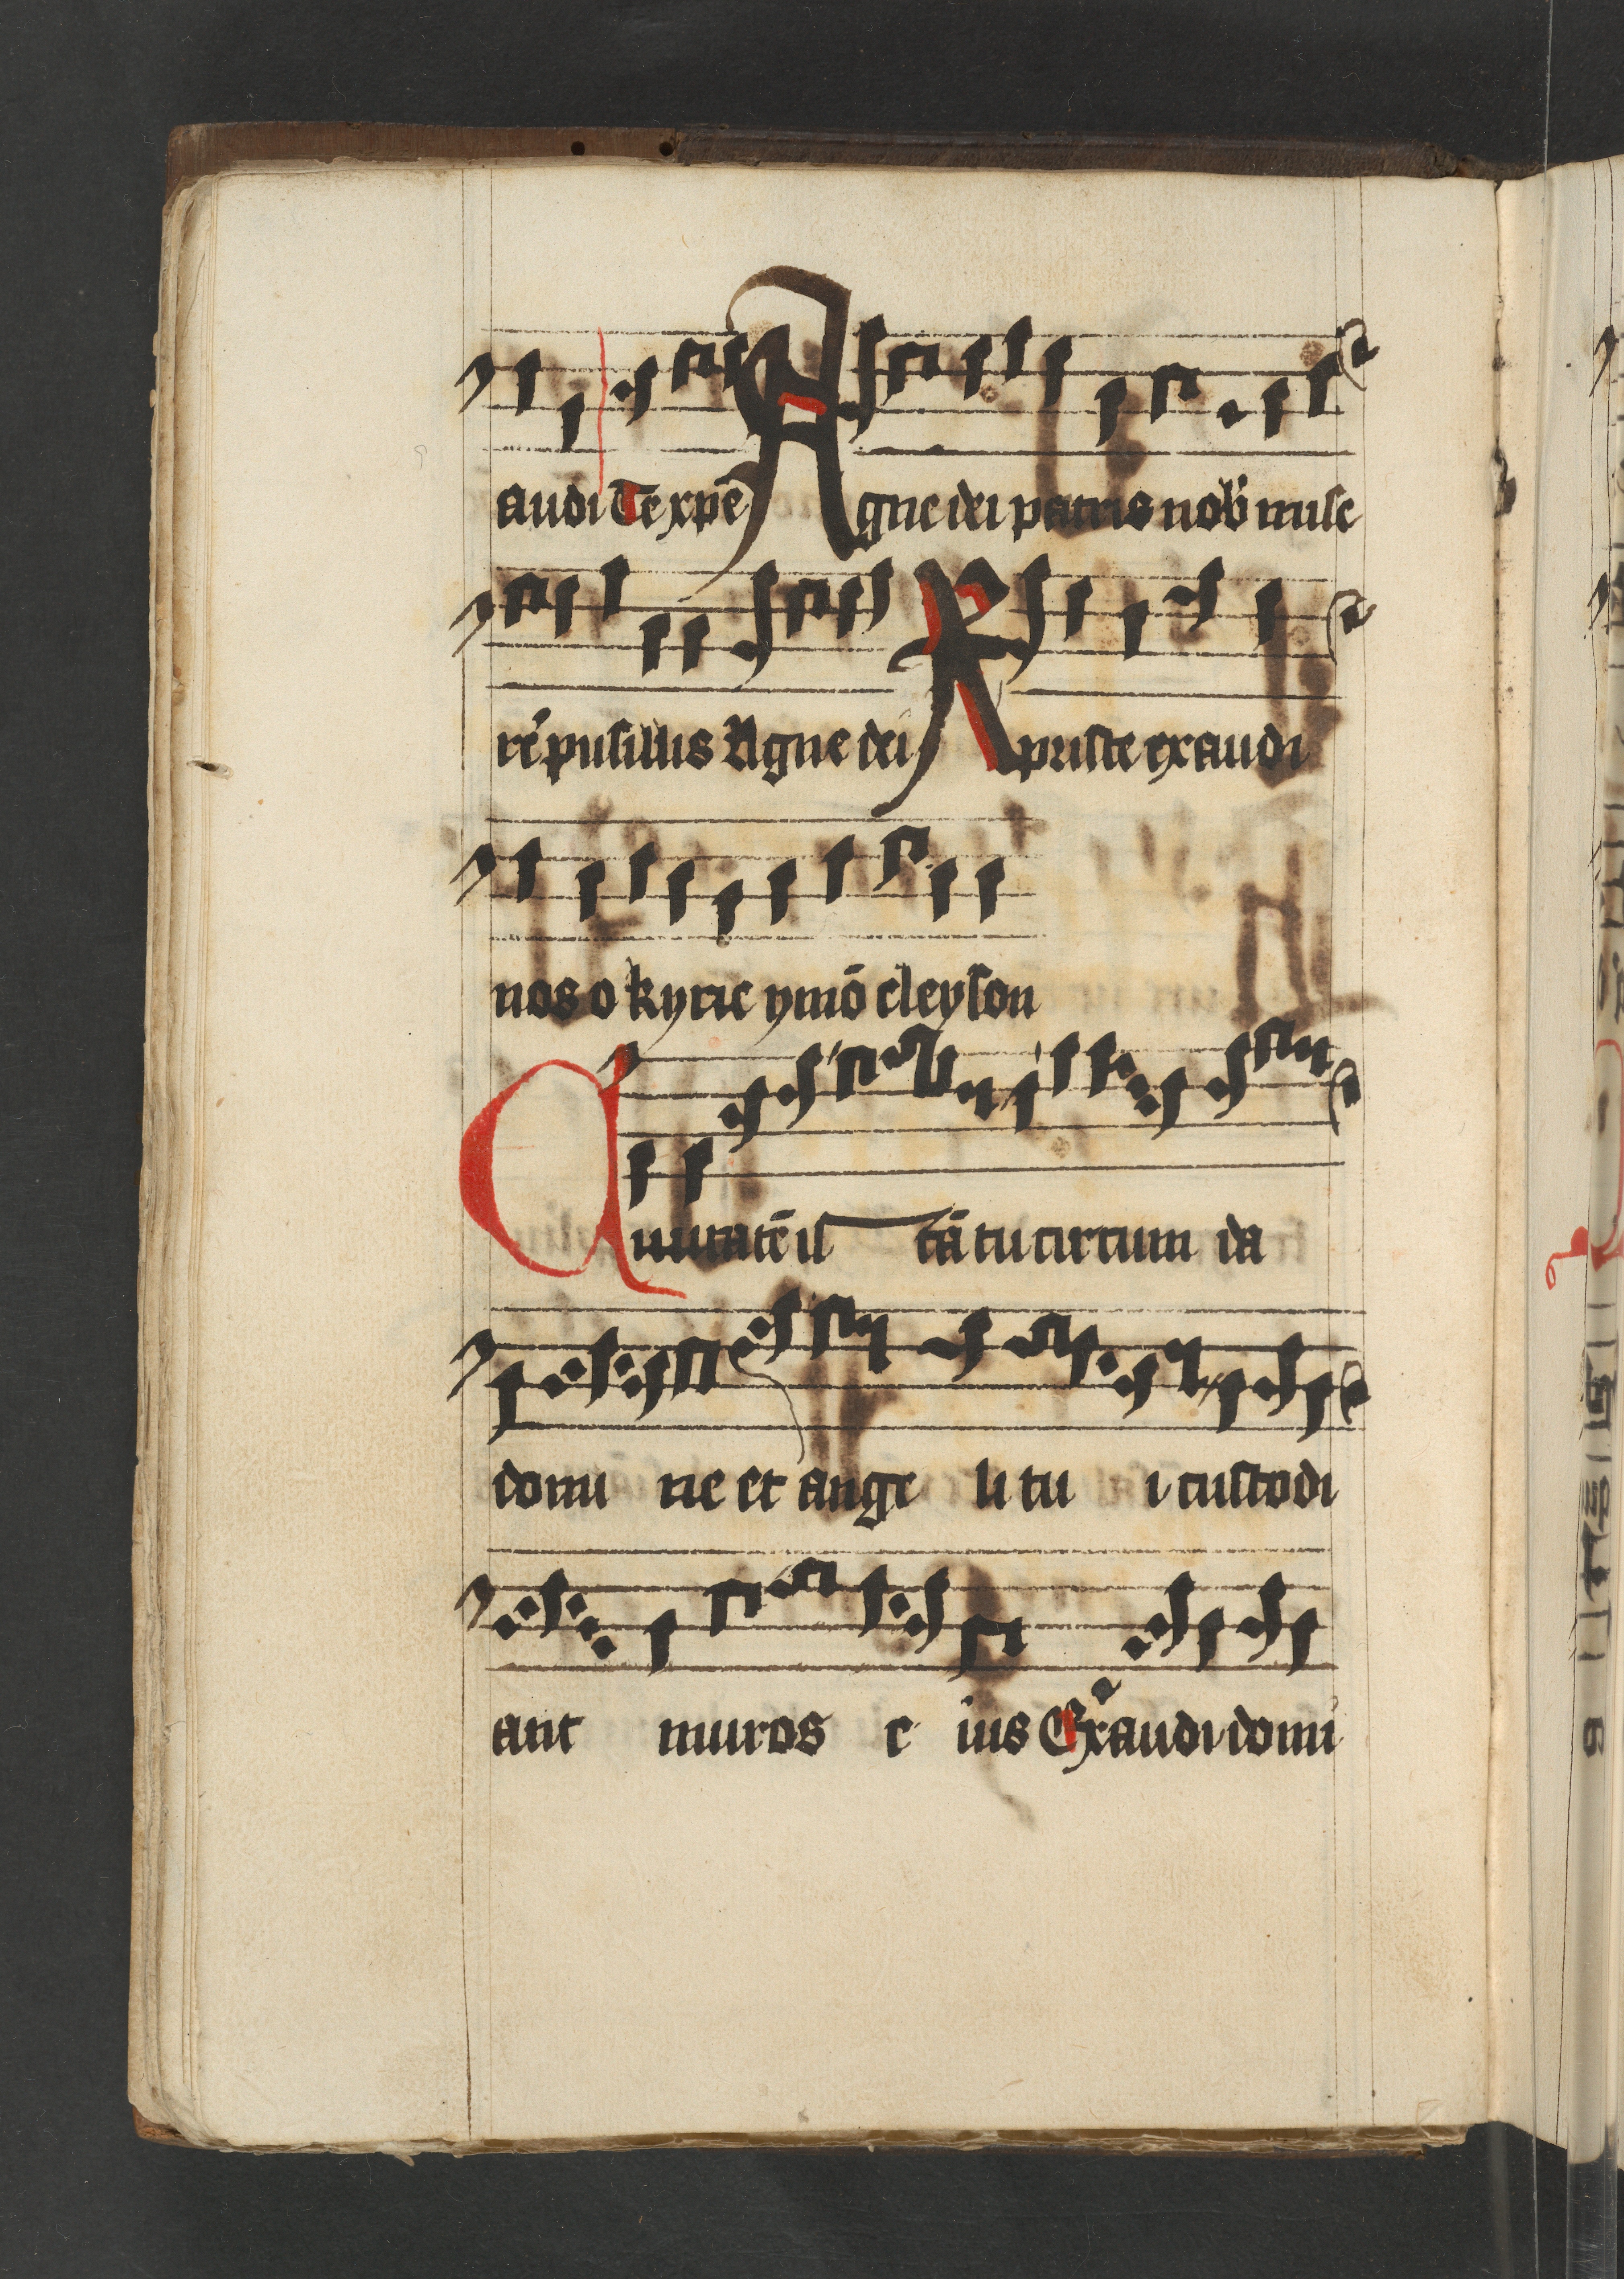 audi Te xpē Agne dei patris nob̄ mise
rē pusillis Agne dei Rpriste exaudi
nos o kyrie ymō eleyson
Ciuitatē is tā tu circum da
domi ne et ange li tu i custodi
ant muros e ius Exaudi domi